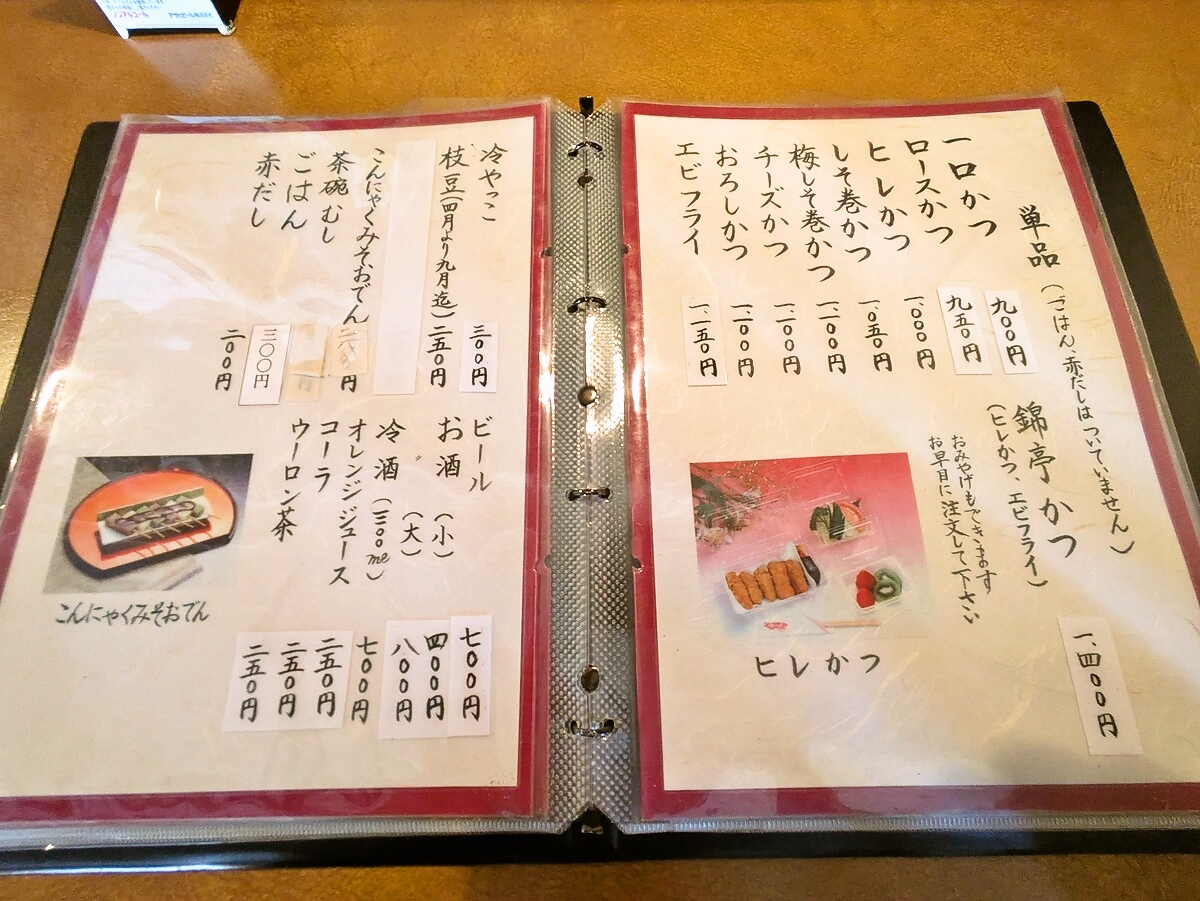 ノンアルコール
アサヒビール株式会社
単品(ごはん、赤だしはついていません)
一口かつ 九〇〇円
ロースかつ 九五〇円
ヒレかつ 一、〇〇〇円
しそ巻かつ 一、〇五〇円
梅しそ巻かつ 一、一〇〇円
チーズかつ 一、一〇〇円
おろしかつ 一、一〇〇円
エビフライ 一、一五〇円
錦亭かつ 一、四〇〇円
(ヒレかつ、エビフライ)
おみやげもできます
お早目に注文して下さい
ヒレかつ
冷やっこ 三〇〇円
枝豆(四月より九月迄) 二五〇円
こんにゃくみそおでん 円
茶碗むし
ごはん 三〇〇円
赤だし 二〇〇円
ビール 七〇〇円
お酒 (小) 四〇〇円
(大) 八〇〇円
冷酒(三〇〇ml) 七〇〇円
オレンジジュース 二五〇円
コーラ 二五〇円
ウーロン茶 二五〇円
こんにゃくみそおでん